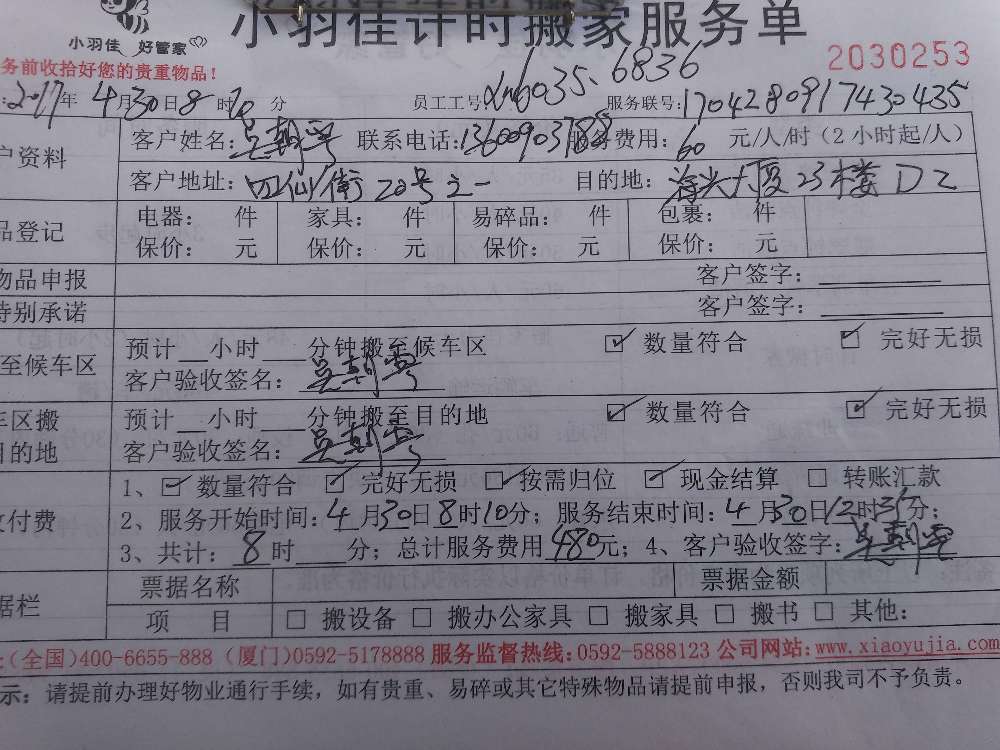 小羽佳 好管家
小羽佳计时搬家服务单
务前收拾好您的贵重物品！
2030253
2017年4月30日8时10分 员工工号 6035. 6836 服务联号：1704280917430435
户资料 客户姓名：吴朝雪 联系电话：13600903788 服务费用：60 元/人/时（2小时起/人）
客户地址：四仙街20号之一 目的地：海光大厦23楼D2
品登记 电器： 件 家具： 件 易碎品： 件 包裹： 件
保价： 元 保价： 元 保价： 元 保价： 元
物品申报 客户签字：
特别承诺 客户签字：
至候车区 预计__小时___分钟搬至候车区 ☑ 数量符合 ☑ 完好无损
客户验收签名：吴朝雪
车区搬 预计__小时___分钟搬至目的地 ☑ 数量符合 ☑ 完好无损
目的地 客户验收签名：吴朝雪
1、☑ 数量符合 ☑ 完好无损 ☑ 按需归位 ☑ 现金结算 ☐ 转账汇款
收付费 2、服务开始时间：4月30日8时10分；服务结束时间：4月30日12时31分；
3、共计：8时___分；总计服务费用480元；4、客户验收签字：吴朝雪
据栏 票据名称 票据金额
项 目 ☐ 搬设备 ☐ 搬办公家具 ☐ 搬家具 ☐ 搬书 ☐ 其他：
：(全国)400-6655-888 (厦门)0592-5178888 服务监督热线：0592-5888123 公司网站：www.xiaoyujia.com
示：请提前办理好物业通行手续，如有贵重、易碎或其它特殊物品请提前申报，否则我司不予负责。